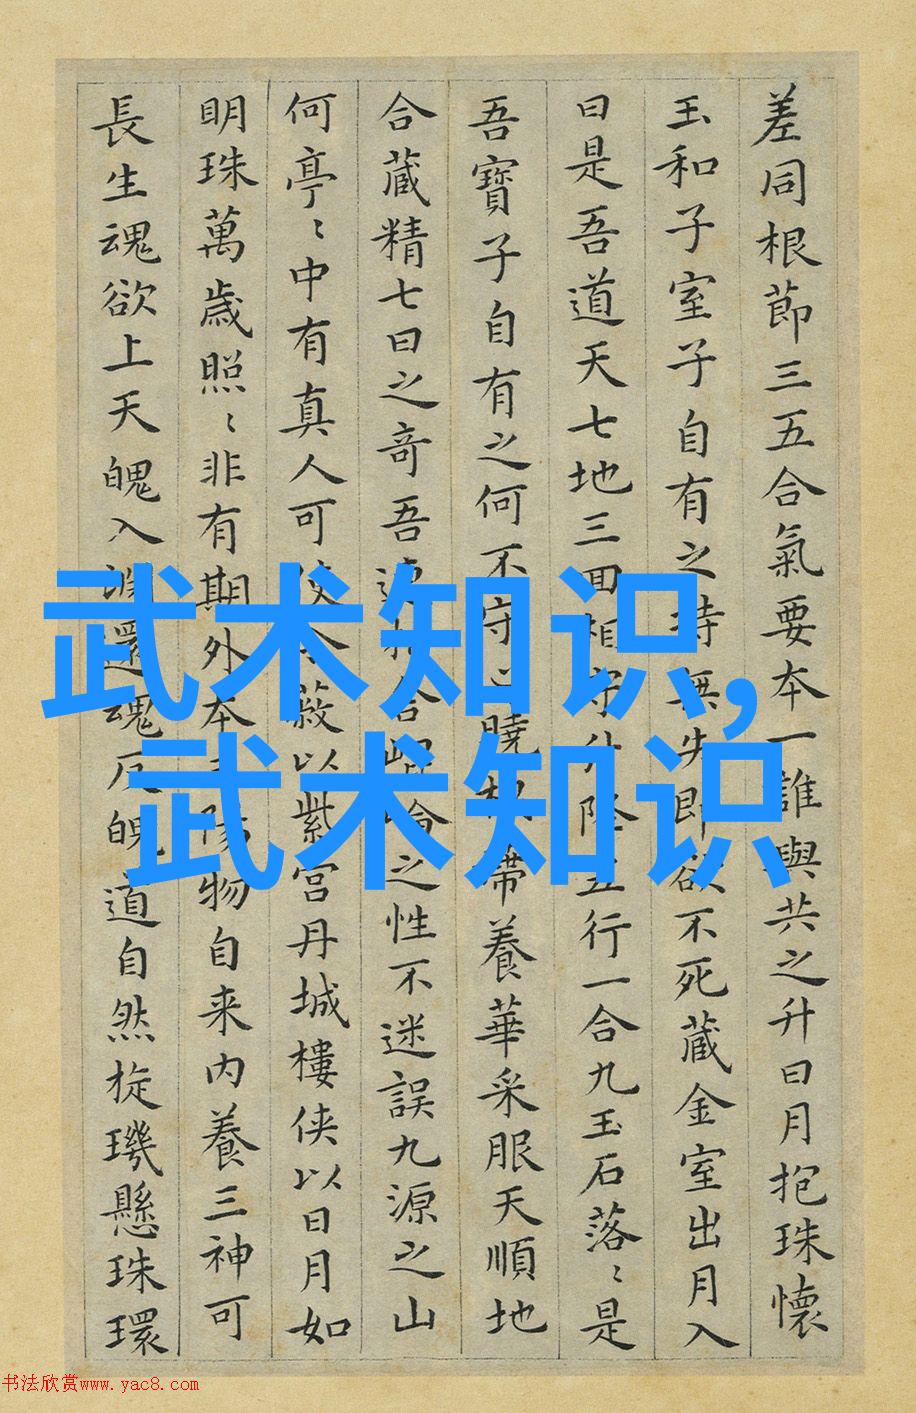 差同根節三五合氣要本一誰與共之升日月抱珠懷
玉和子室子自有之持無失即欲不死藏金室出月入
日是吾道天七地三回相守升降五行一合九玉石落〻是
吾寶子自有之何不守心曉根蒂養華采服天順地
合藏精七日之奇吾連相合崐崘之性不迷誤九源之山
何亭〻中有真人可使令蔽以紫宮丹城樓俠以日月如
明珠萬歲照〻非有期外本三陽物自来內養三神可
長生魂欲上天魄入淵還魂反魄道自然旋璣懸珠環
武术知识,
武术知识
书法欣赏www.yac8.com